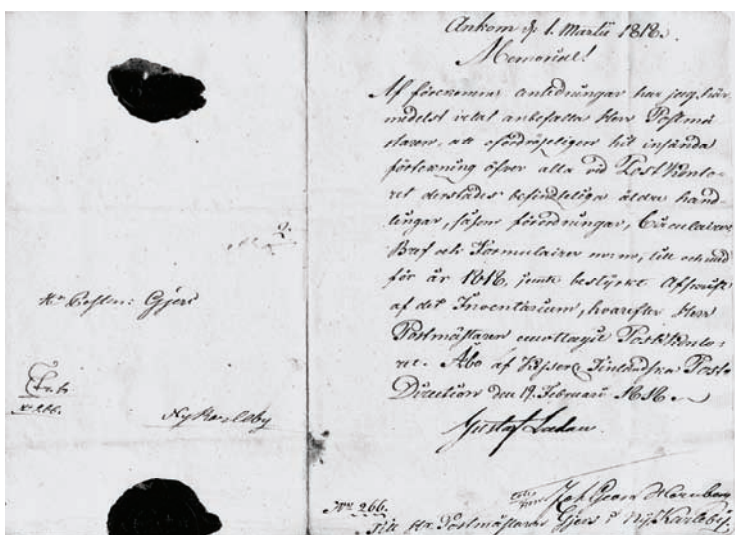 Hr Postm: Gjers
No 266.
Ny Karleby
Ankom d. 1. Martii 1818.
Memorial!
Af förekomne anledningar har jag här-
medelst velat anbefalla Herr Postmä
staren, att ofördröjeligen hit insända
förteckning öfver alla vid Post Konto-
ret derstädes befindteliga äldre hand-
lingar, såsom förordningar, Circulairer
Bref och Formulairer m:m, till och med
för år 1818, jemte bestyrkt Afskrift
af det Inventarium, hvarefter Herr
Postmästaren emottagit Post Konto-
ret. Åbo af Kejserl. Finländska Post-
Direction den 19. Februari 1818.
Gustaf Ladau
Joh. Georg
No 266.
Till Hr Postmästaren Gjers i Ny Karleby.